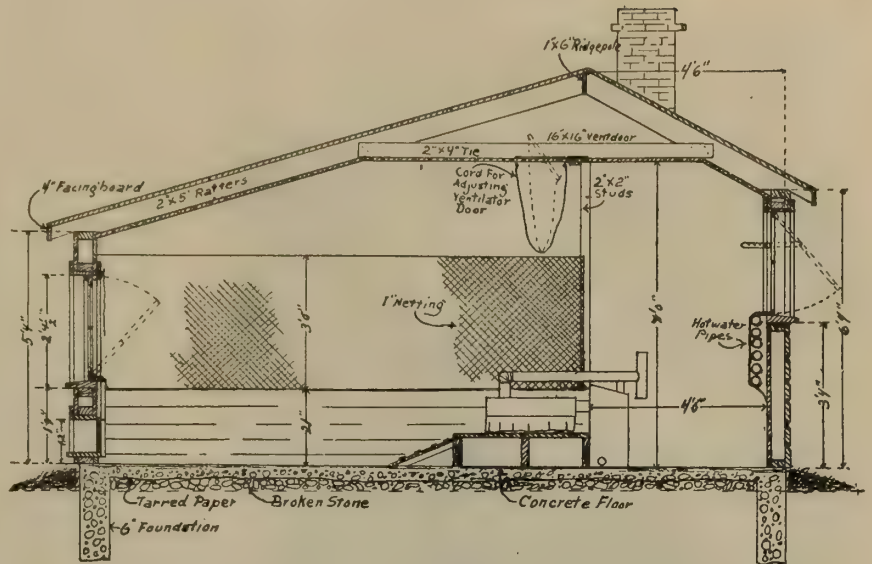 1"X6" Ridgepole
4'6"
16"X16" Ventdoor
2"X4" Tie
Cord For
Adjusting
Ventilator
Door
2"X2"
Studs
4" Facingboard
2"X5" Rafters
5'4"
3'6"
1" Netting
Hotwater
Pipes
6'4"
3'4"
4'6"
21"
12"
Tarred Paper
Broken Stone
Concrete Floor
6" Foundation